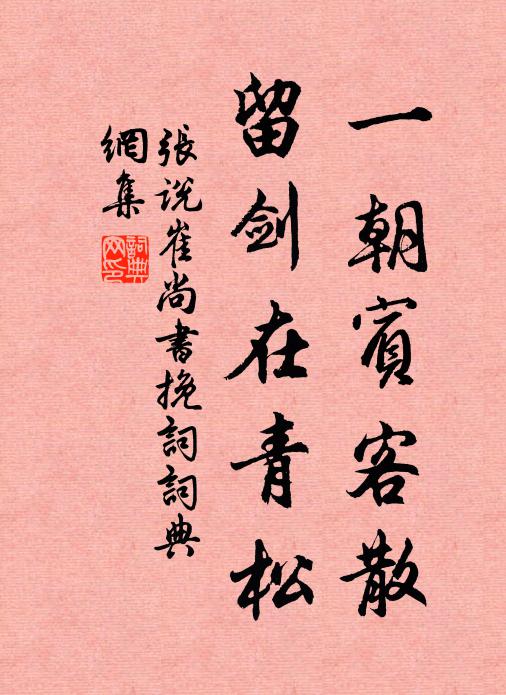 一朝賓客散
留剑在青松
張说崔尚書挽詞詞典
網集
詞典
网印